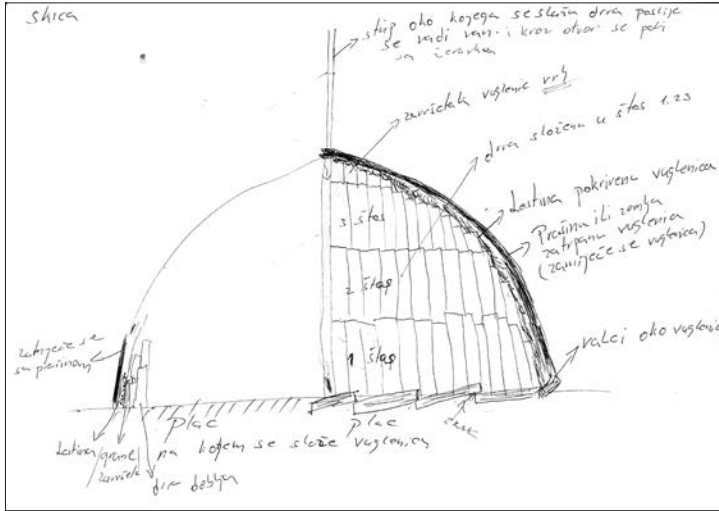 skica
stup oko kojega se slažu drva poslije
se vadi van i kroz otvor se pali
sa žeravkom
završetak vuglenice vrh
drva složena u štos 1.2.3
Lastina pokrivena vuglenica
Prašina ili zemlja
zatrpana vuglenica
(zamiječe se vuglenica)
3 štos
2 štos
1 štos
valci oko vuglenice
zamiječe se
sa prašinom
plac
plac
na kojem se slaže vuglenica
Lastina
grane
drva deblja